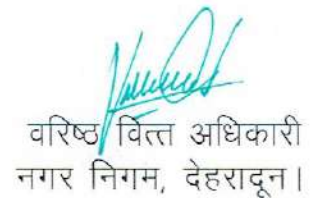 वरिष्ठ वित्त अधिकारी
नगर निगम, देहरादून।